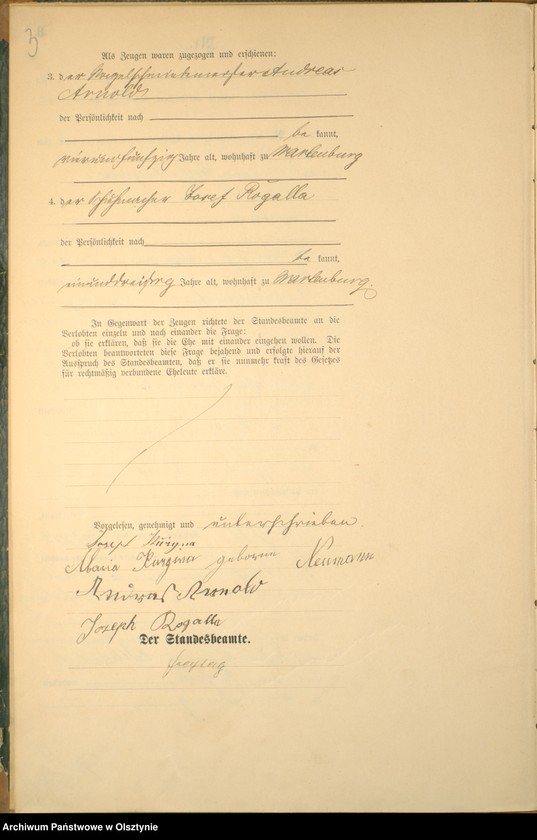 3
Als Zeugen waren zugezogen und erschienen:
3. der Nagelschmiedemeister Andreas
Arnold
der Persönlichkeit nach
be kannt,
vierundfünfzig Jahre alt, wohnhaft zu Wartenburg
4. der Schuhmacher Josef Rogalla
der Persönlichkeit nach
be kannt,
einunddreißig Jahre alt, wohnhaft zu Wartenburg.
In Gegenwart der Zeugen richtete der Standesbeamte an die
Verlobten einzeln und nach einander die Frage:
ob sie erklären, daß sie die Ehe mit einander eingehen wollen. Die
Verlobten beantworteten diese Frage bejahend und erfolgte hierauf der
Ausspruch des Standesbeamten, daß er sie nunmehr kraft des Gesetzes
für rechtmäßig verbundene Eheleute erkläre.
Vorgelesen, genehmigt und unterschrieben.
Joseph
Maria geborene Neumann
Andreas Arnold
Joseph Rogalla
Der Standesbeamte.
Archiwum Państwowe w Olsztynie